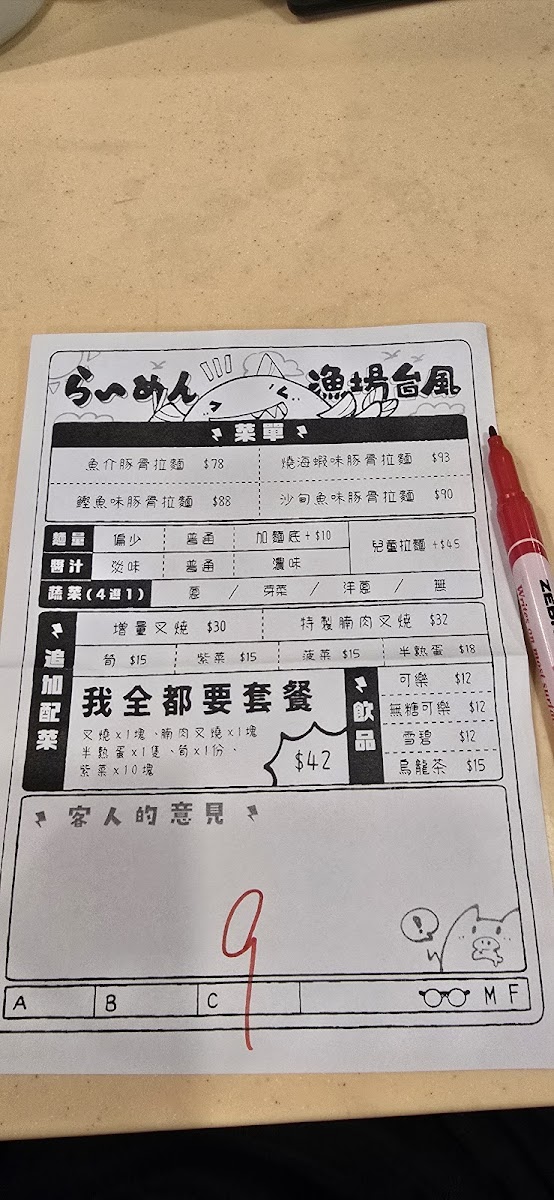 らーめん 漁場台風
菜單
魚介豚骨拉麵 $78 燒海蝦味豚骨拉麵 $93
鰹魚味豚骨拉麵 $88 沙甸魚味豚骨拉麵 $90
麵量 偏少 普通 加麵底+$10 兒童拉麵+$45
醬汁 淡味 普通 濃味
蔬菜(4選1) 蔥 / 芽菜 / 洋蔥 / 無
追加配菜
增量叉燒 $30 特製腩肉叉燒 $32
筍 $15 紫菜 $15 菠菜 $15 半熟蛋 $18
我全都要套餐
叉燒x1塊、腩肉叉燒x1塊
半熟蛋x1隻、筍x1份、
紫菜x10塊
$42
飲品
可樂 $12
無糖可樂 $12
雪碧 $12
烏龍茶 $15
客人的意見
!
9
A B C M F
ZEB